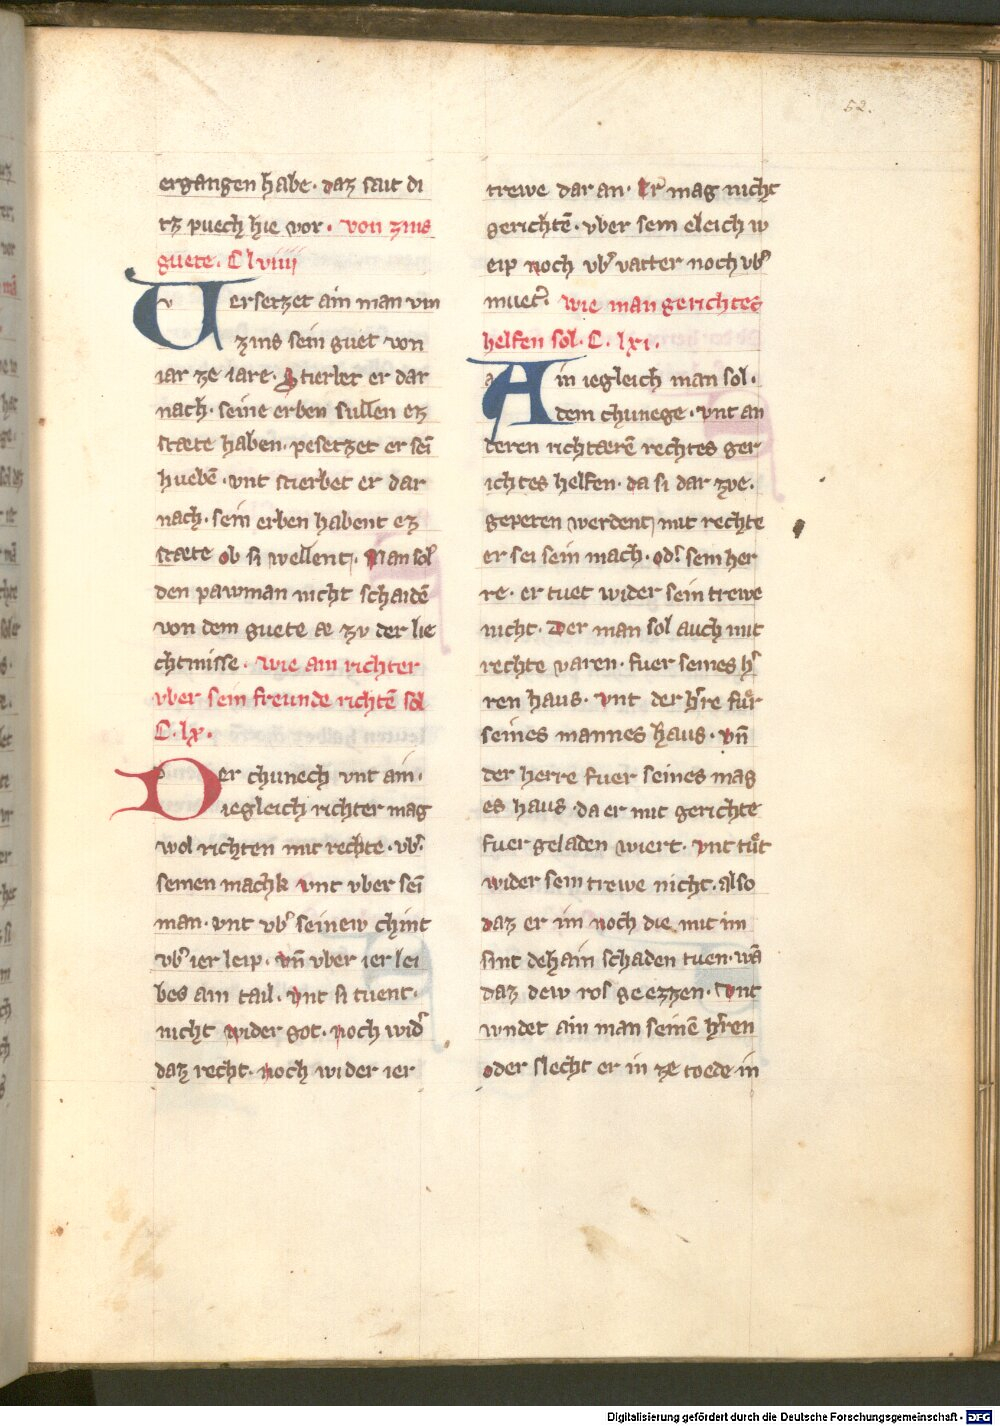 52.
ergangen habe · daz sait di
tz puech hie vor · von zins
guete · C lviiii
Versetzet ain man vm
zins sein guet von
iar ze iare · Stierbet er dar
nach · seine erben sullen ez
stæte haben · pesetzet er sei̅
huebe̅ · vnt stierbet er dar
nach · sein erben habent ez
stæte ob si wellent · Man sol
den pawman nicht schaide̅
von dem guete æ zv der lie
chtmisse · wie ain richter
vber sein freunde richte̅ sol
C · lx ·
Der chunech vnt ain ·
iegleich richter mag
wol richten mit rechte · vb᾽
seinen machk vnt vber sei̅
man · vnt vb᾽ seinew chint
vb᾽ ier leip · vn̅ vber ier lei
bes ain tail · vnt si tuent ·
nicht wider got · noch wid᾽
daz recht · noch wider ier
trewe dar an · Er mag nicht
gerichte̅ · vber sein eleich w
eip noch vb᾽ vatter noch vb᾽
muet᾽ · wie man gerichtes
helfen sol · C · lxi ·
Ain iegleich man sol ·
dem chunege · vnt an
deren richtære̅ rechtes ger
ichtes helfen · da si dar zve ·
gepeten werdent mit rechte
er sei sein mach · od᾽ sein her
re · er tuet wider sein trewe
nicht · Der man sol auch mit
rechte varen · fuer seines h᾽
ren haus · vnt der h᾽re fuͤr
seines mannes haus · vn̅
der herre fuer seines mag
es haus · da er mit gerichte
fuer geladen wiert · vnt tuͤt
wider sein trewe nicht · also
daz er im noch die mit im
sint dehain schaden tuen · wa̅
daz dew ros geezzen · Vnt
wndet ain man seine̅ h᾽ren
oder slecht er in ze toede in
Digitalisierung gefördert durch die Deutsche Forschungsgemeinschaft - DFG